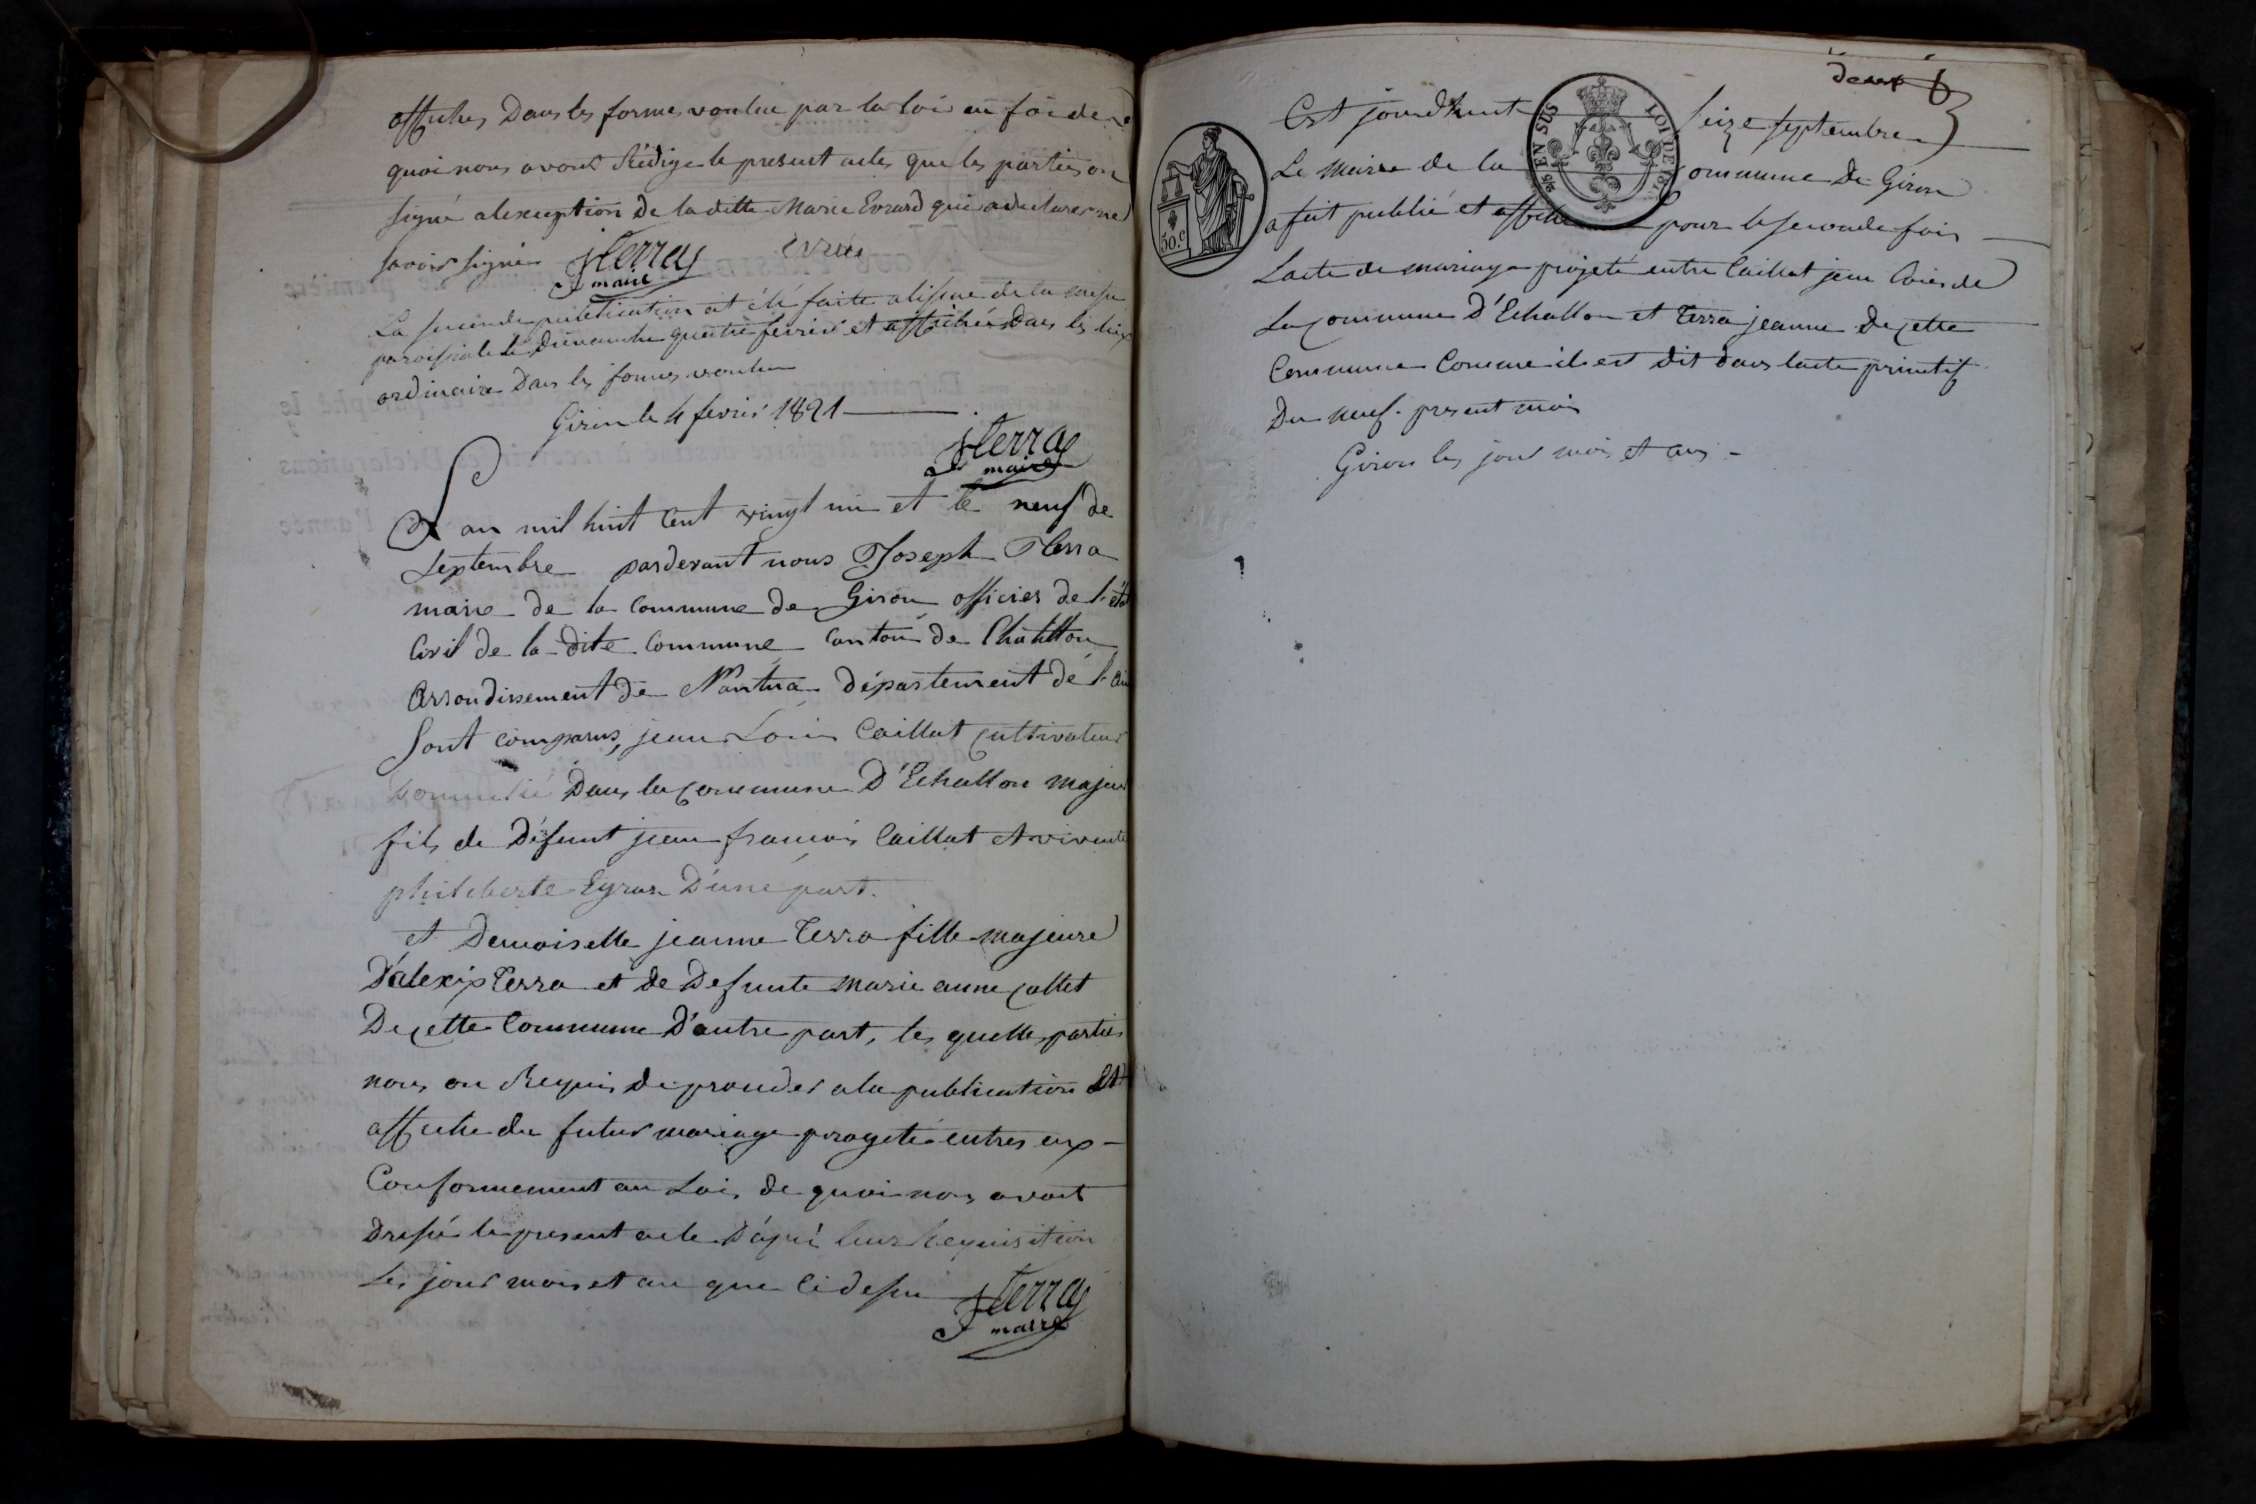 affiches Dans les formes voulue par la loi en foi de
quoi nous avons Rédige le present acte que les parties on
signé alexception De la ditte Marie Evrard qui a declarer ne
savoir signer JTerra Evrard
maire
La seconde publication at été faite a lissue de la messe
paroissiale le Dimanche quatre fevrier et affichée Dans les lieux
ordinaire Dans les formes voulue
Giron le 4 fevrier 1821
JTerra
maire
L an mil huit cent vingt un et le neuf de
septembre pardevant nous Joseph Terra
maire de la commune de Giron officier de l'état
Civil de la dite commune canton de Chatillon
arrondissement de Nantua département de l'ain
Sont comparus, jean Louis Caillat cultivateur
Domicilié Dans la commune D'Echallon majeur
fils de Défunt jean francois Caillat et vivente
philiberte Egraz D'une part.
et Demoiselle jeanne Terra fille majeure
D'alexis Terra et de Defunte Marie anne collet
De cette Commune D'autre part, les quelle parties
nous on Requis de proceder a la publication Et
affiche du futur mariage progeté entres eux
Conformement au Lois, de quoi nous avont
Dressé le present acte D'apré leur Requisition
Les jour mois et an que ci dessu JTerra
maire
deux
Cest jourdhuit seize septembre
Le Maire de la commune De Giron
a fait publié et affiché pour la seconde fois
Lacte de mariage projeté entre Caillat jean Louis de
La commune D'Echallon et Terra jeanne De cette
Commune Comme il est dit dans lacte primitif
Du neuf present mois
Giron les jour mois et an
TIMBRE
50.c
EN SUS
LOI DE 1816